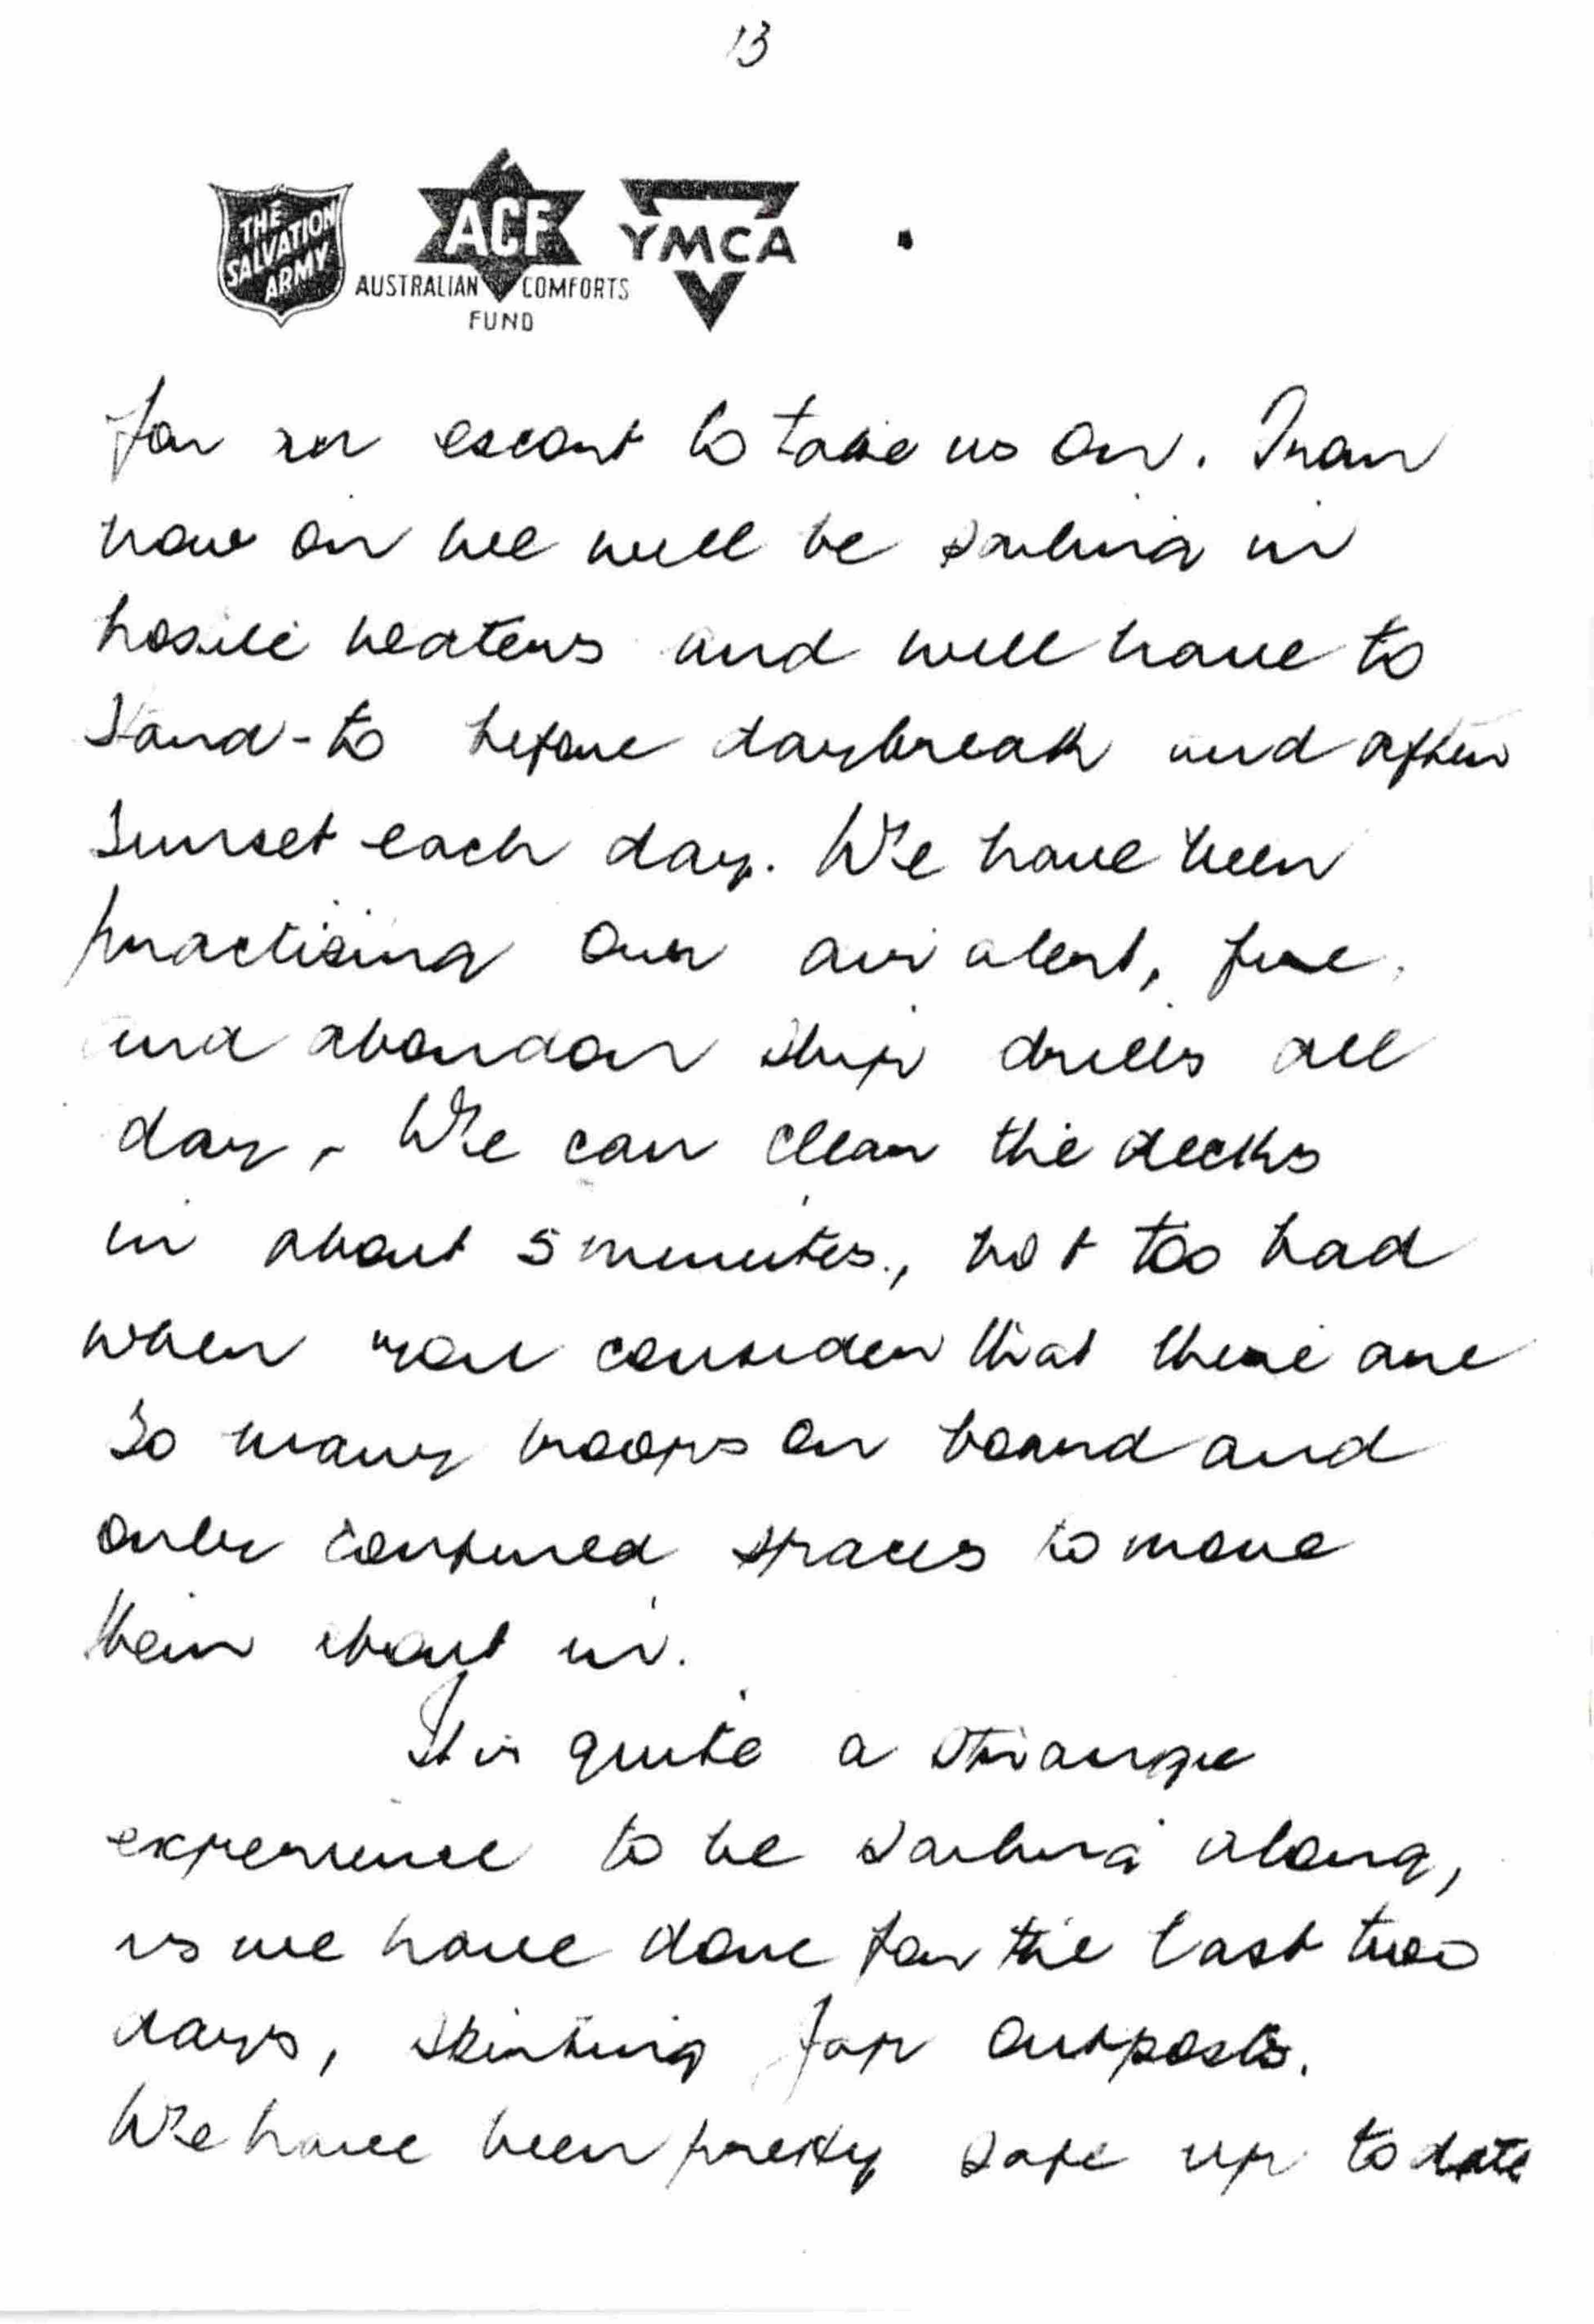 13
THE SALVATION ARMY
ACF
AUSTRALIAN COMFORTS FUND
YMCA
for an escort to take us on. From
now on we will be sailing in
hosile waters and will have to
Stand-to before daybreak and after
Sunset each day. We have been
practising our air alert, fire,
and abandon ship drills all
day. We can clear the decks
in about 5 minutes., not too bad
when you consider that there are
so many troops on board and
only confined spaces to move
them about in.
It is quite a strange
experience to be sailing along,
as we have done for the last two
days, skirting Jap outposts.
We have been pretty safe up to date